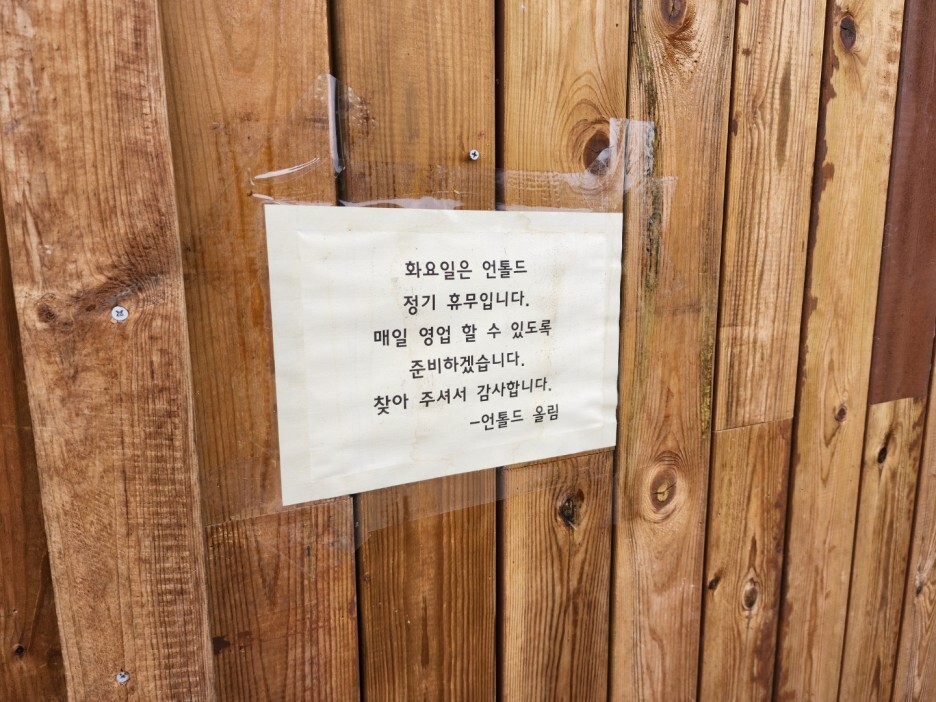 화요일은 언톨드
정기 휴무입니다.
매일 영업 할 수 있도록
준비하겠습니다.
찾아 주셔서 감사합니다.
-언톨드 올림